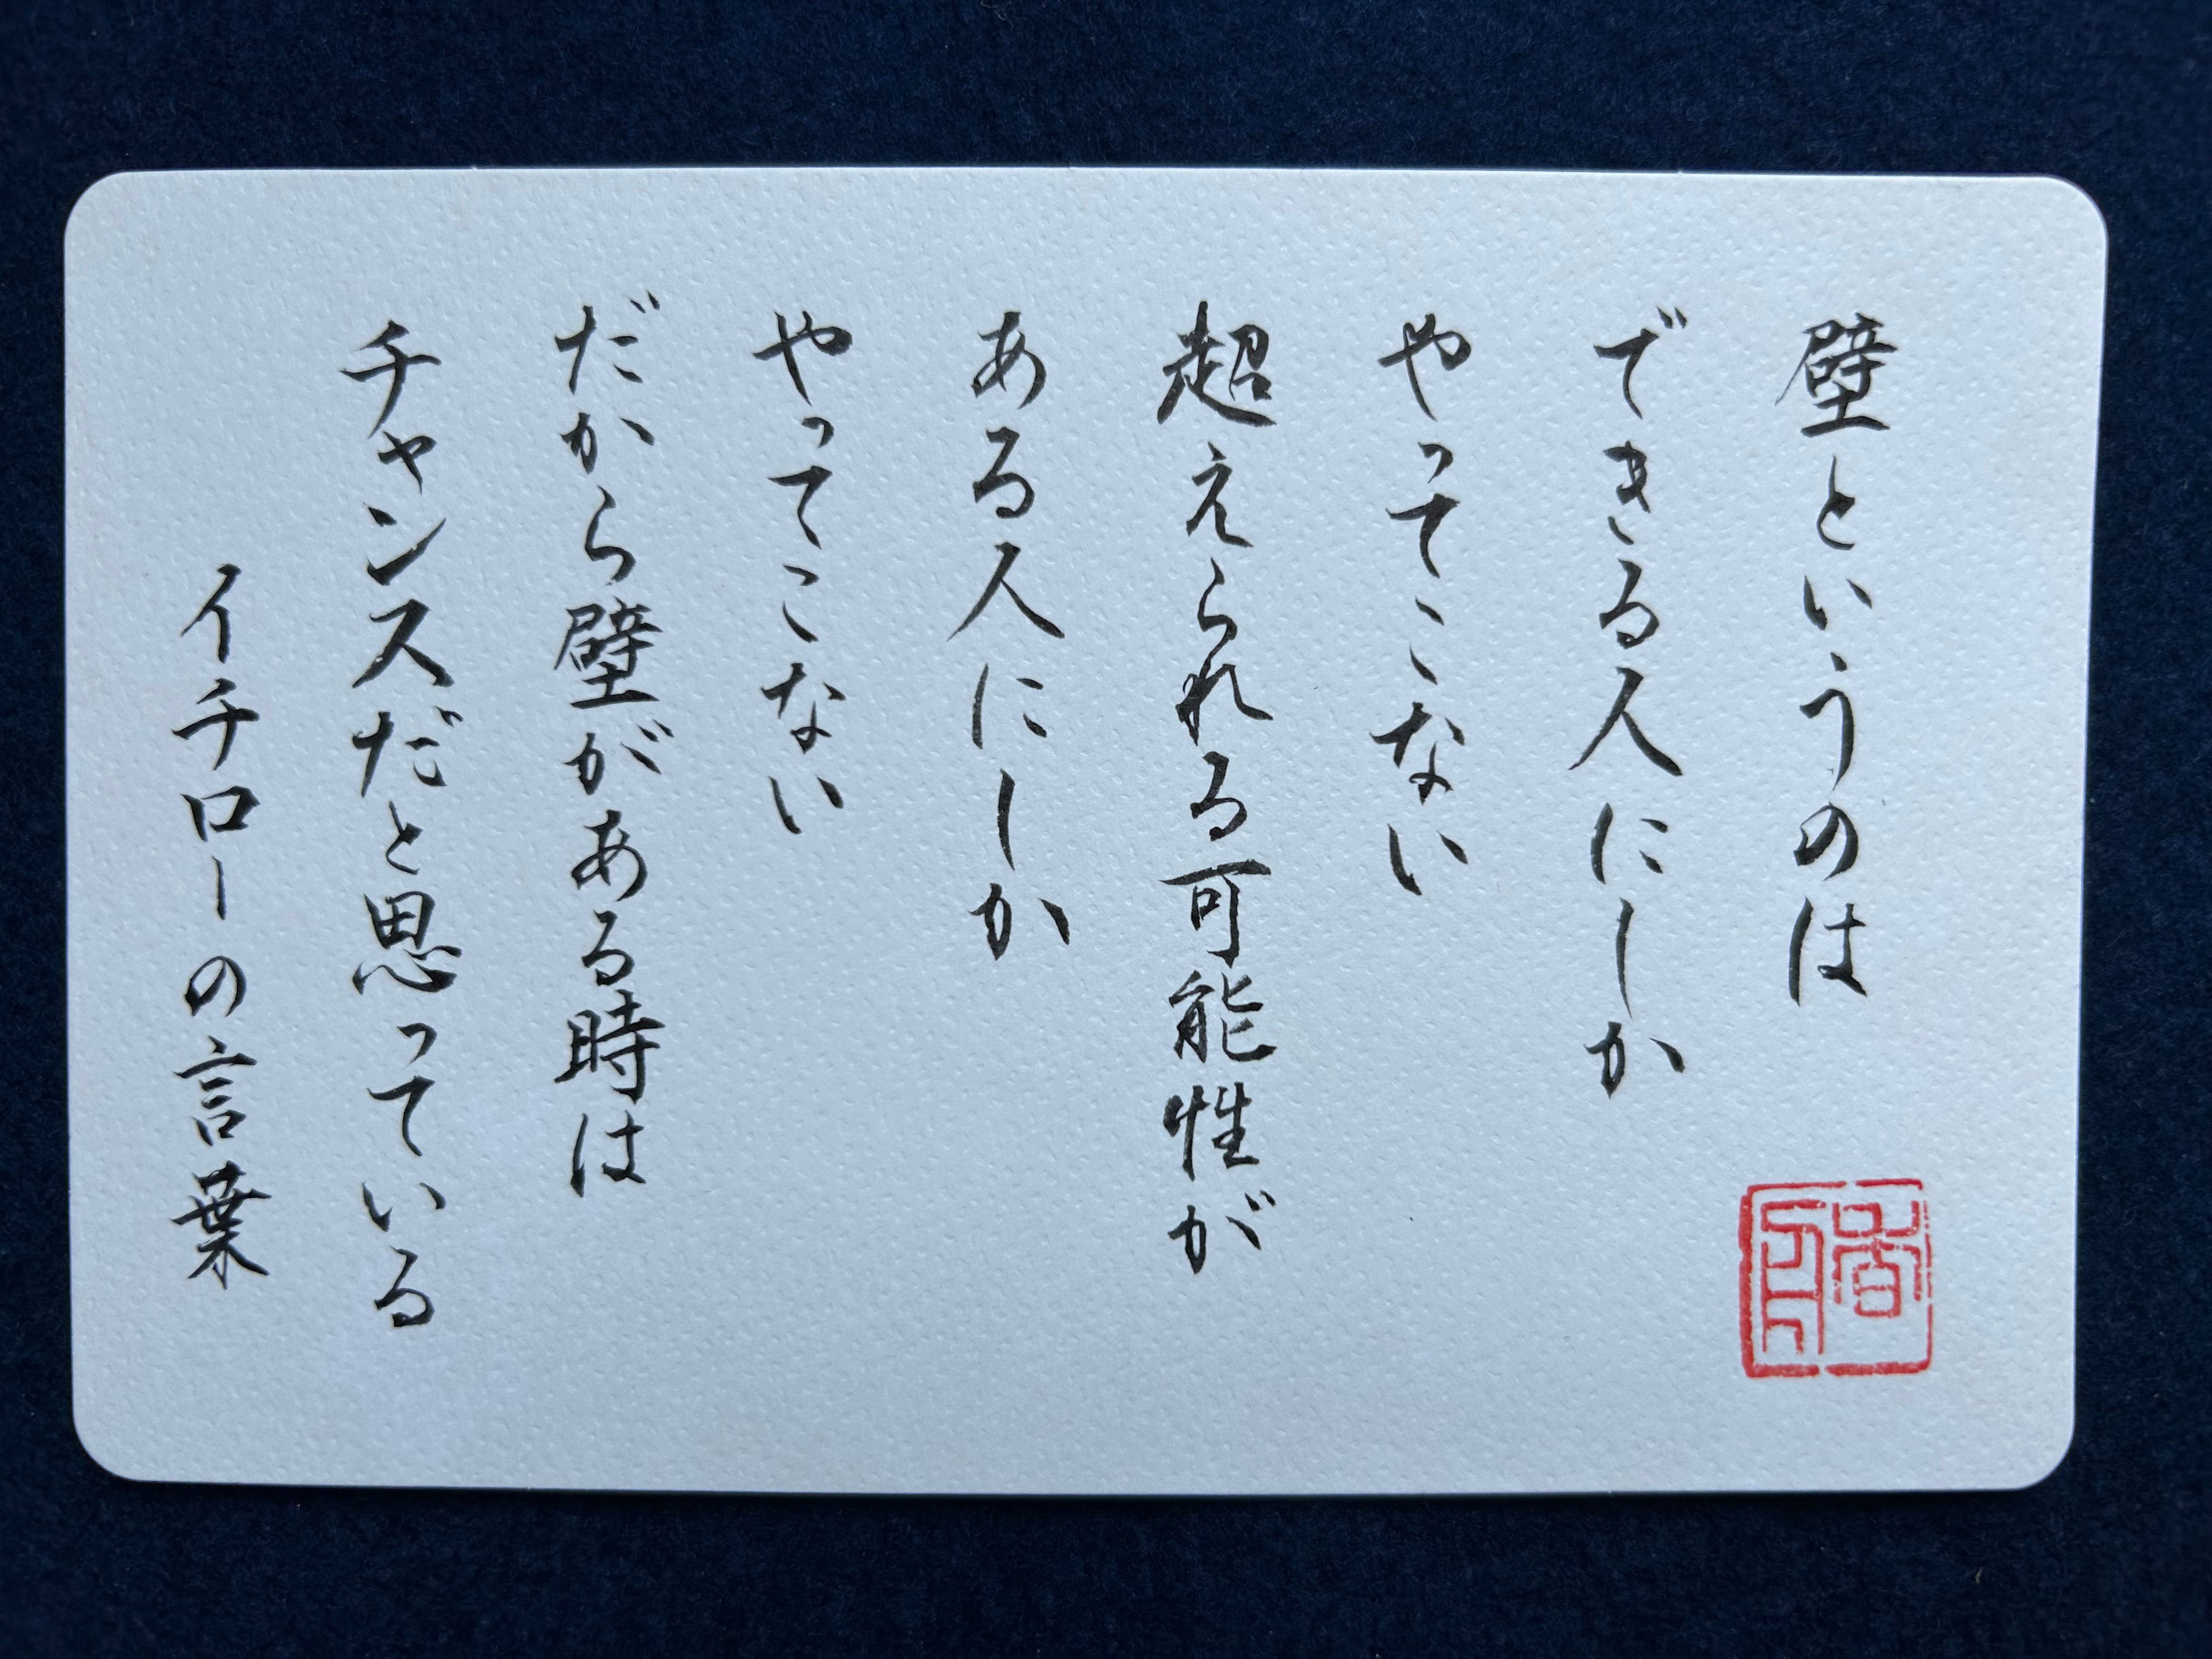 壁というのは
できる人にしか
やってこない
超えられる可能性が
ある人にしか
やってこない
だから壁がある時は
チャンスだと思っている
イチローの言葉